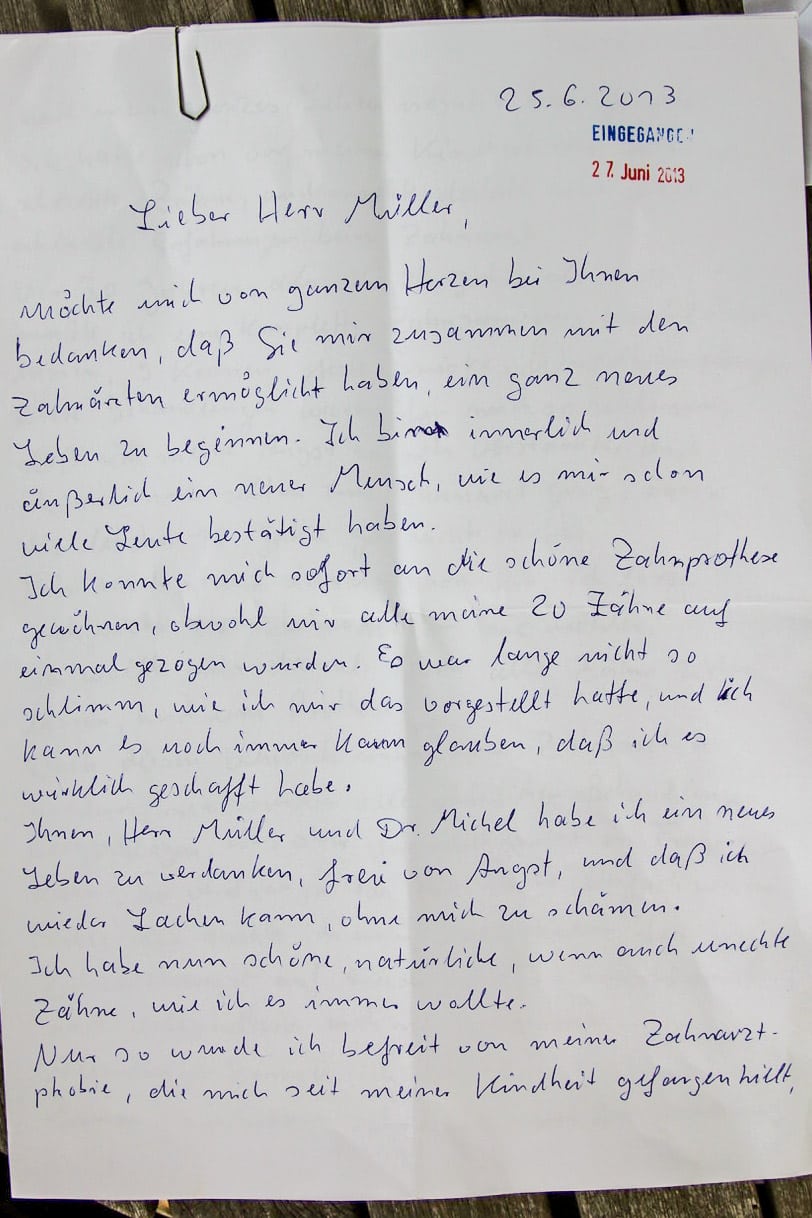 25.6.2013
EINGEGANGEN
27. Juni 2013
Lieber Herr Müller,
möchte mich von ganzem Herzen bei Ihnen
bedanken, daß Sie mir zusammen mit den
Zahnärzten ermöglicht haben, ein ganz neues
Leben zu beginnen. Ich bin innerlich und
äußerlich ein neuer Mensch, wie es mir schon
viele Leute bestätigt haben.
Ich konnte mich sofort an die schöne Zahnprothese
gewöhnen, obwohl mir alle meine 20 Zähne auf
einmal gezogen wurden. Es war lange nicht so
schlimm, wie ich mir das vorgestellt hatte, und ich
kann es noch immer kaum glauben, daß ich es
wirklich geschafft habe.
Ihnen, Herr Müller und Dr. Michel habe ich ein neues
Leben zu verdanken, frei von Angst, und daß ich
wieder Lachen kann, ohne mich zu schämen.
Ich habe nun schöne, natürliche, wenn auch unechte
Zähne, wie ich es immer wollte.
Nur so wurde ich befreit von meiner Zahnarzt-
phobie, die mich seit meiner Kindheit gefangen hielt,